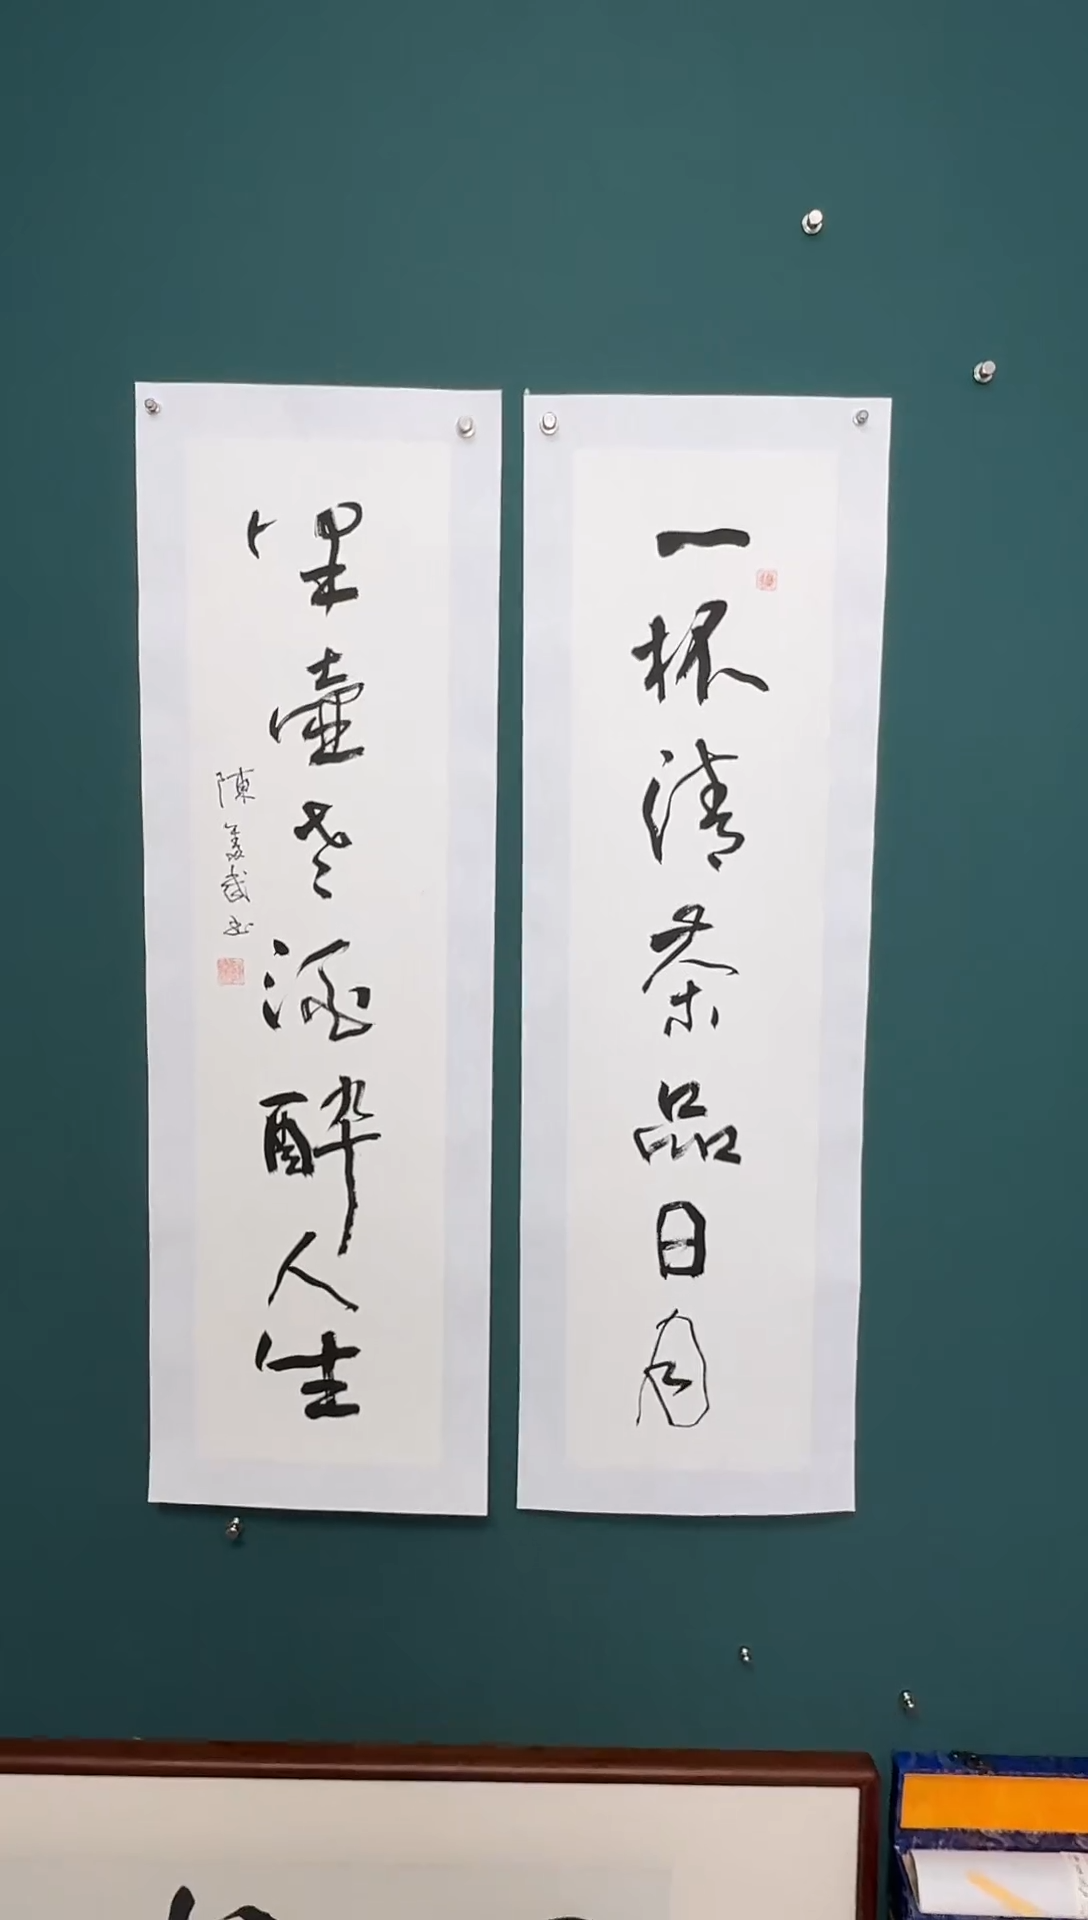 一杯清茶品日月
半壶老酒醉人生
陳美武书